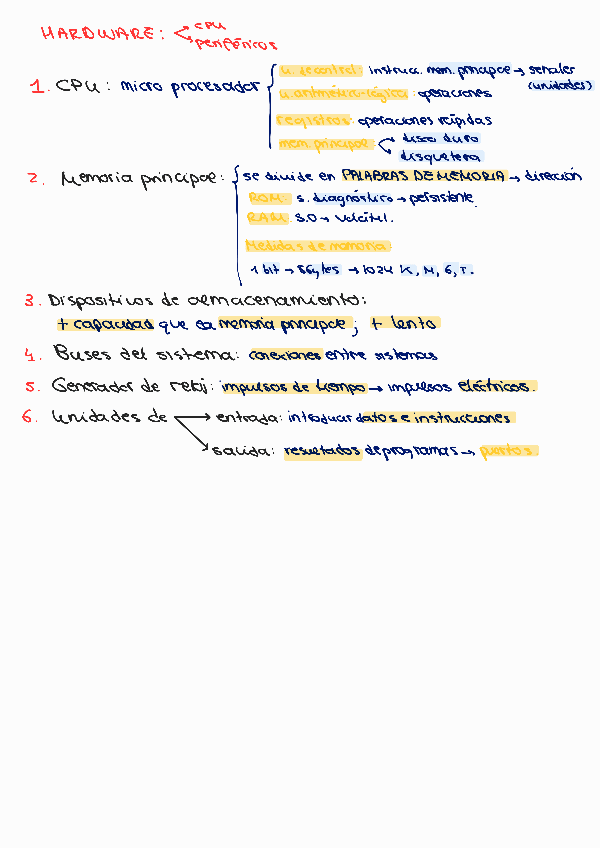 HARDWARE: CPU
periféricos
1. CPU: micro procesador
u. de control: instrucc. mem. principal → señales (unidades)
u. aritmético-lógica: operaciones
registros: operaciones rápidas
mem. principal: disco duro
disquetera
2. Memoria principal: se divide en PALABRAS DE MEMORIA → dirección
ROM: s. diagnóstico → persistente.
RAM: S.O → volátil.
Medidas de memoria:
1 bit → 8 bytes → 1024 K, M, G, T.
3. Dispositivos de almacenamiento:
+ capacidad que la memoria principal; + lento
4. Buses del sistema: conexiones entre sistemas
5. Generador de reloj: impulsos de tiempo → impulsos eléctricos.
6. Unidades de → entrada: introducir datos e instrucciones
salida: resultados de programas → puertos.